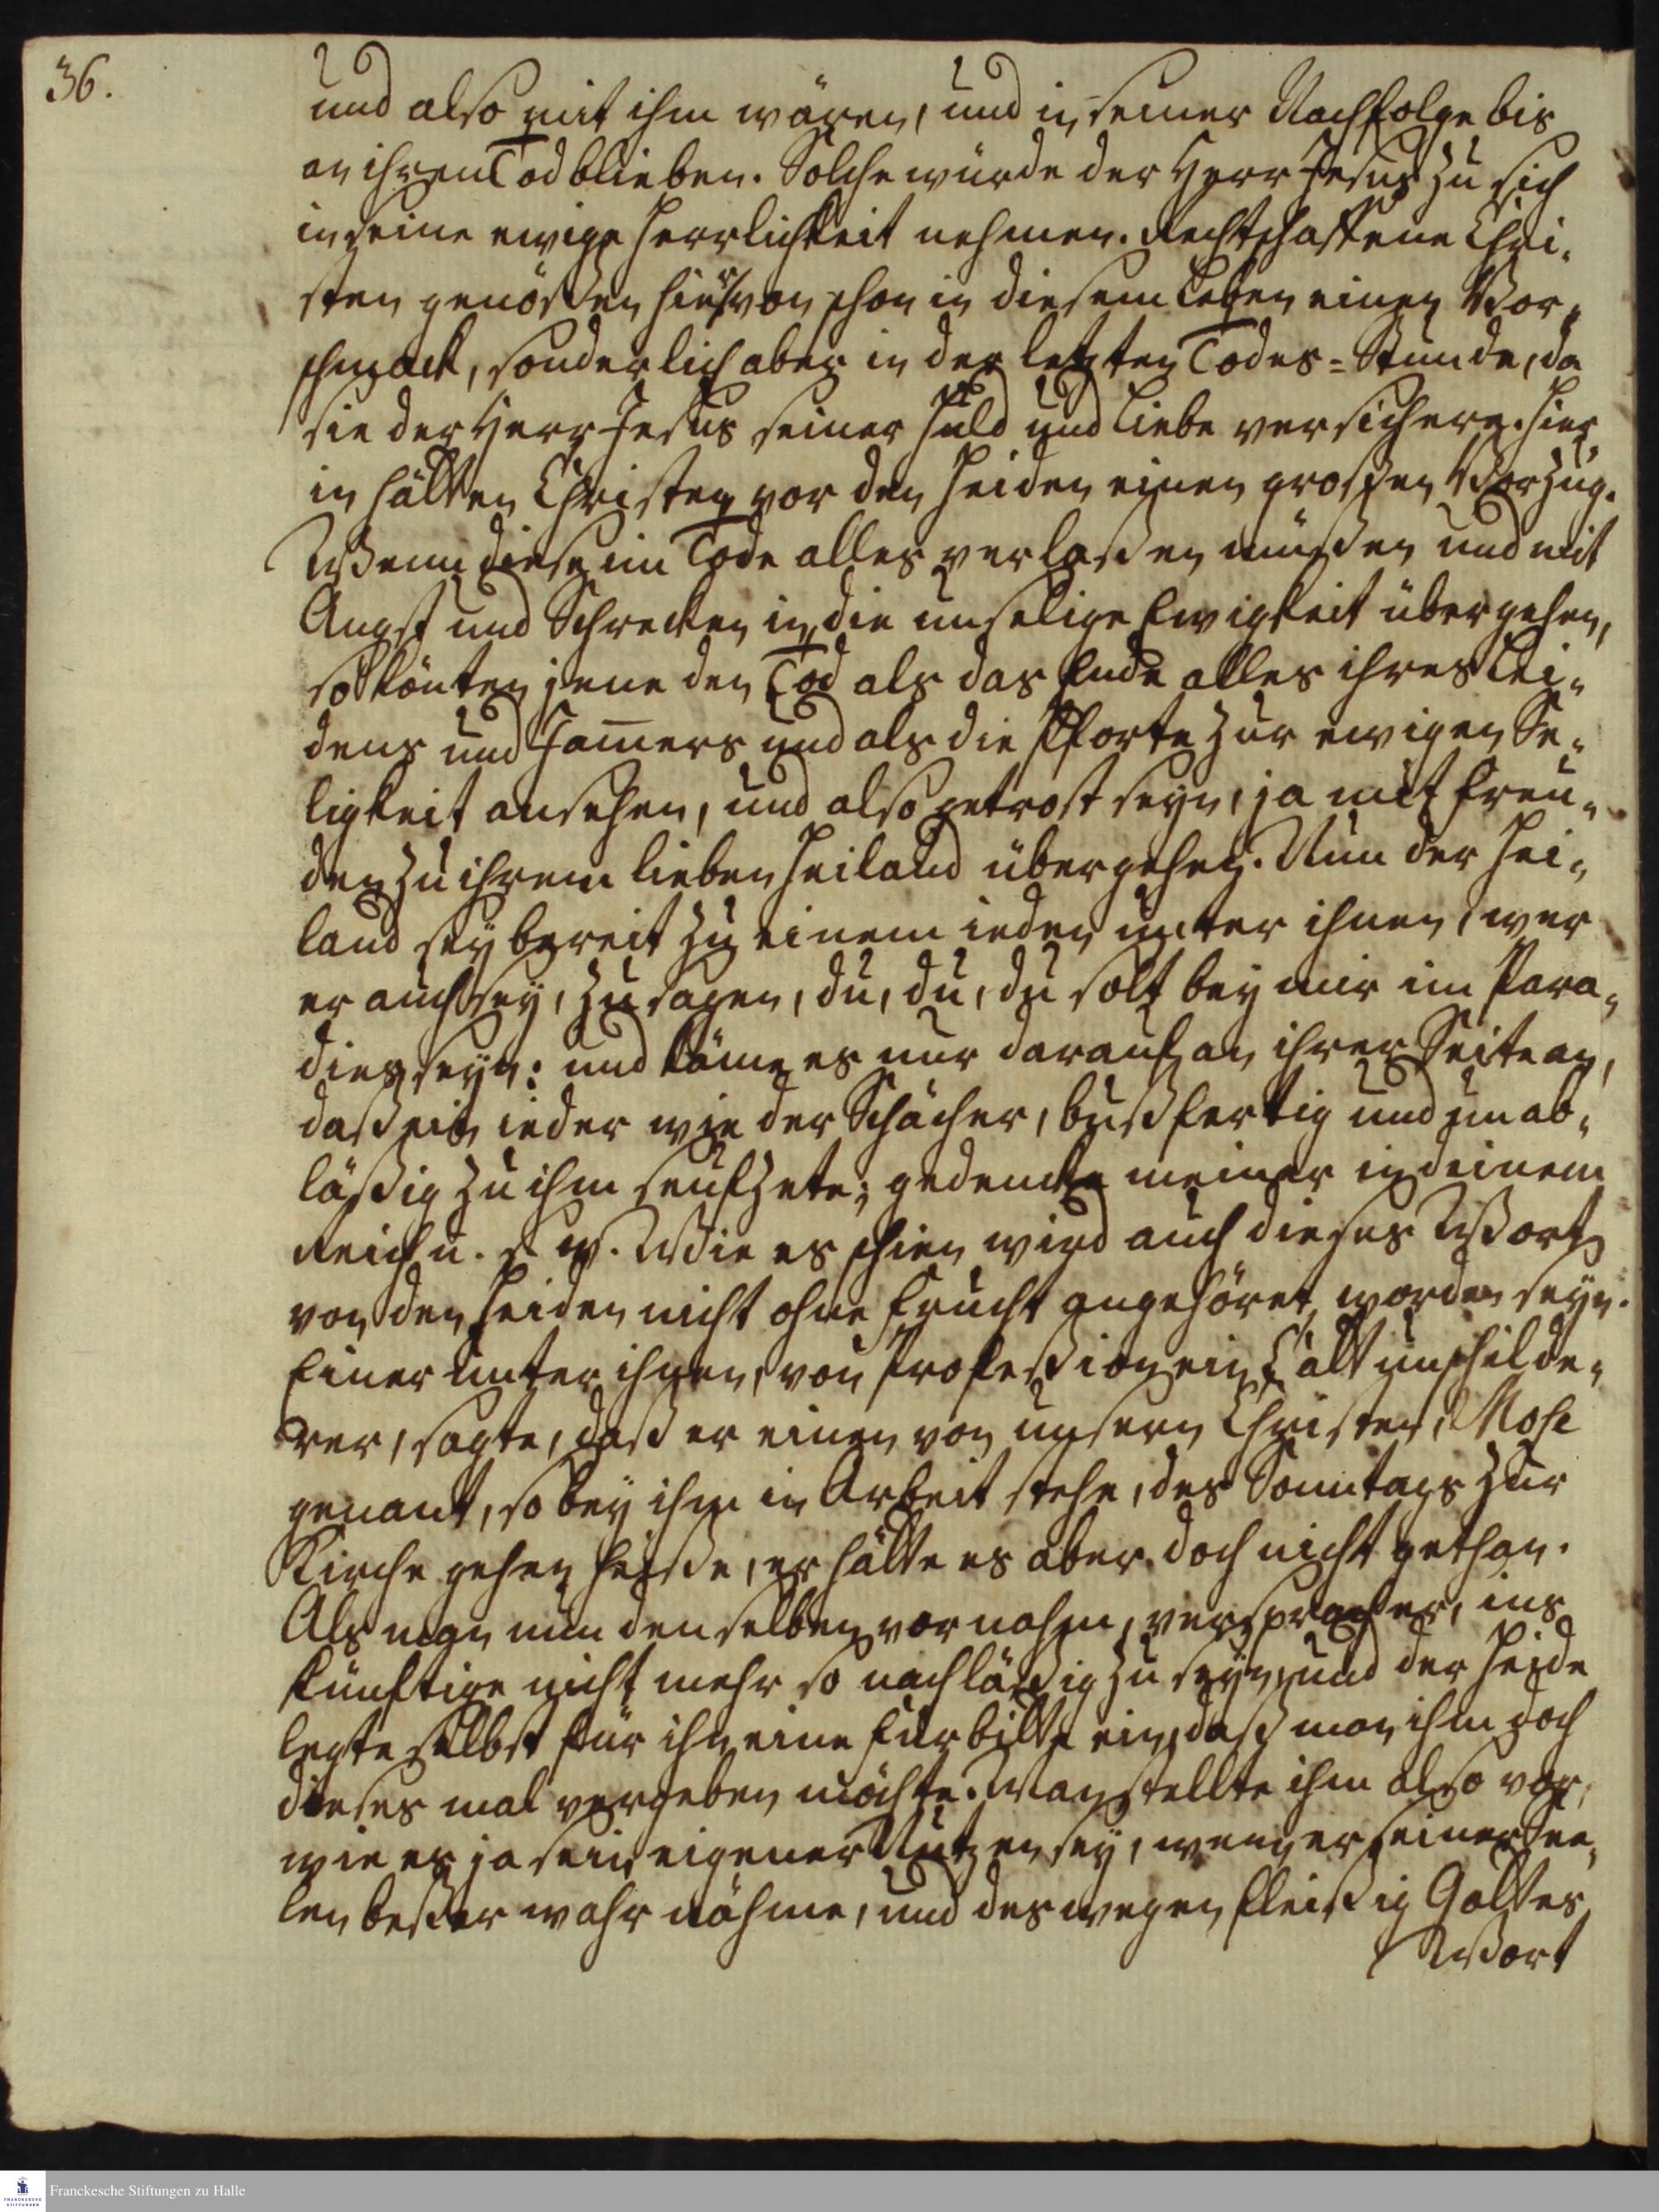 36.
und also mit ihm wären, und in seiner Nachfolge bis
an ihren Tod blieben. Solche würde der Herr Jesus zu sich
in seine ewige Herrlichkeit nehmen. Rechtschaffene Chri-
sten genößen hiervon schon in diesem Leben einen Vor-
schmack, sonderlich aber in der letzten Todes=Stunde, da
sie der Herr Jesus seiner Huld und Liebe versichere. Hier-
in hätten Christen vor den Heiden einen großen Vorzug.
Wenn diese im Tode alles verlaßen müßen und mit
Angst und Schrecken in die unselige Ewigkeit übergehen,
so könten jene den Tod als das Ende alles ihres Lei-
dens und Jam̅ers und als die Pforte zur ewigen Se-
ligkeit ansehen, und also getrost seyn, ja mit Freu-
den zu ihrem lieben Heiland übergehen. Nun der Hei-
land sey bereit zu einem ieden unter ihnen, wer
er auch sey, zu sagen, du, du, du solt bey mir im Para-
dies seyn: und käme es nur darauf an ihrer Seite an,
daß ein ieder wie der Schächer, bußfertig und unab-
läßig zu ihm seufzete; gedencke meiner in deinem
Reich u. s. w. Wie es schien wird auch dieses Wort
von den Heiden nicht ohne Frucht angehöret worden seyn.
Einer unter ihnen, von Profeßion ein
rer, sagte, daß er einen von unsern Christen, Mose
genant, so bey ihm in Arbeit stehe, des Sonntags zur
Kirche gehen heiße, er hätte es aber doch nicht gethan.
Als man nun denselben vornahm, versprach er, ins
künftige nicht mehr so nachläßig zu seyn, und der Heide
legte selbst für ihn eine Fürbitte ein, daß man ihm doch
dieses mal vergeben möchte. Man stellte ihm also vor,
wie es ja sein eigener Nutzen sey, wenn er seiner See-
len beßer wahr nähme, und deswegen fleißig Gottes
Wort
Franckesche Stiftungen zu Halle
FRANCKESCHE
STIFTUNGEN